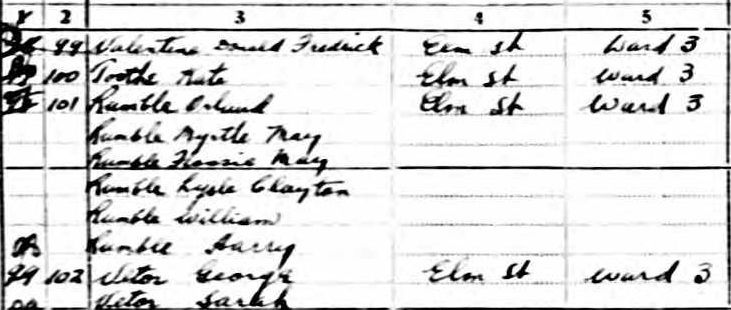 1 2 3 4 5
99 Valentine Donald Fredrick Elm St Ward 3
100 Toothe Kate Elm St Ward 3
101 Rumble Orland Elm St Ward 3
Rumble Myrtle May
Rumble Flossie May
Rumble Lysle Clayton
Rumble William
Rumble Harry
102 Vetor George Elm St Ward 3
Vetor Sarah